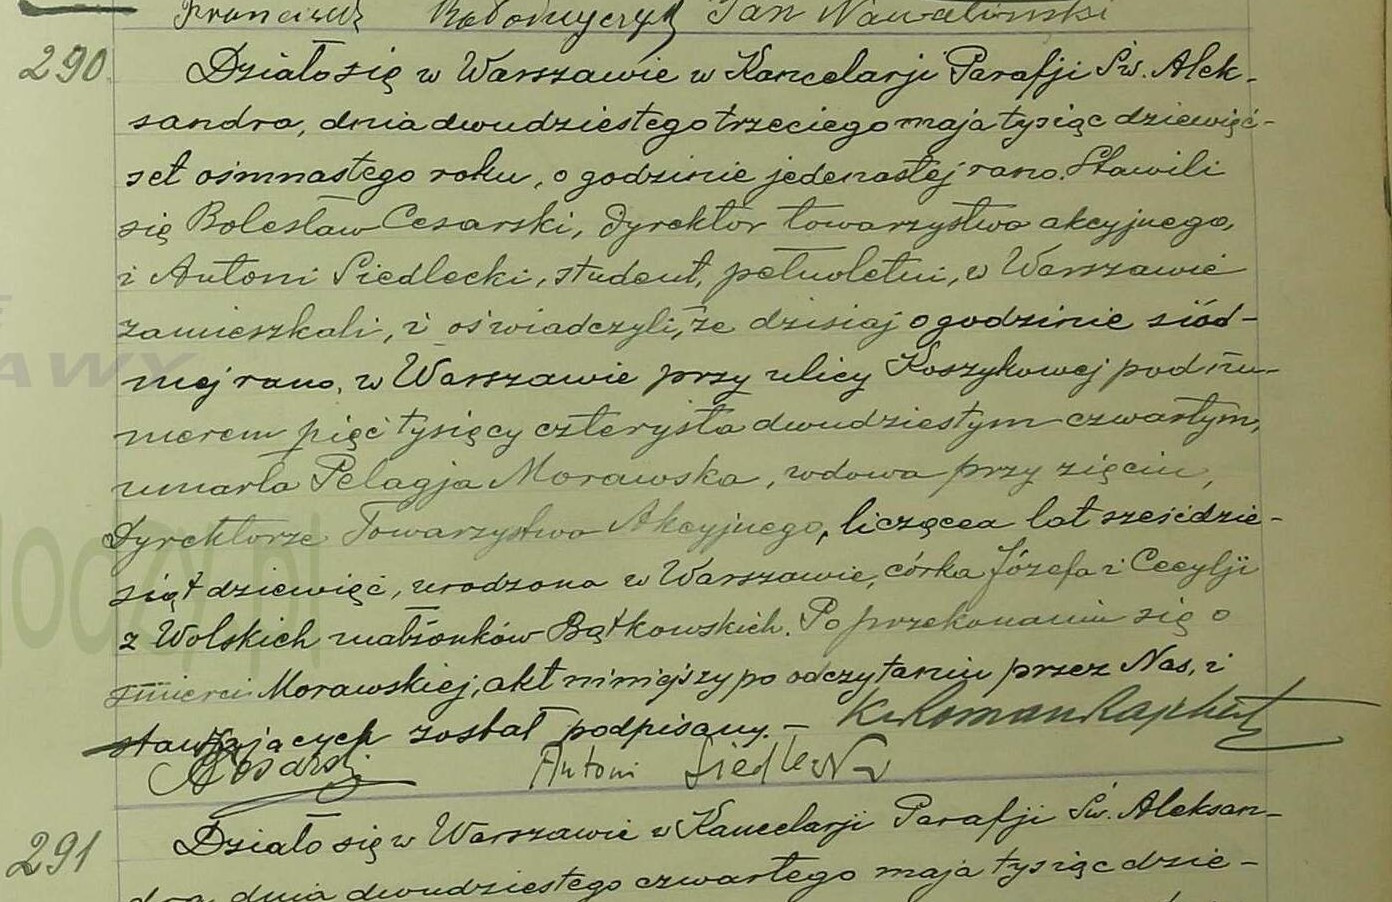 Franciszek Jan Nawaliński
290 Działo się w Warszawie w Kancelarji Parafji Św. Alek-
sandra, dnia dwudziestego trzeciego maja tysiąc dziewięć-
set ośmnastego roku, o godzinie jedenastej rano. Stawili
się Bolesław Cesarski, dyrektor towarzystwa akcyjnego,
i Antoni Siedlecki, student, pełnoletni, w Warszawie
zamieszkali, i oświadczyli, że dzisiaj o godzinie siód-
mej rano, w Warszawie przy ulicy Koszykowej pod nu-
merem pięć tysięcy czterysta dwudziestym czwartym,
umarła Pelagja Morawska, wdowa przy zięciu,
Dyrektorze Towarzystwa Akcyjnego, licząca lat sześćdzie-
siąt dziewięć, urodzona w Warszawie, córka Józefa i Cecylji
z Wolskich małżonków Bątkowskich. Po przekonaniu się o
śmierci Morawskiej, akt niniejszy po odczytaniu przez Nas, i
stawających został podpisany. – Ks Roman
BCesarski Antoni Siedlecki
291 Działo się w Warszawie w Kancelarji Parafji Św. Aleksan-
dra, dnia dwudziestego czwartego maja tysiąc dzie-
AWY